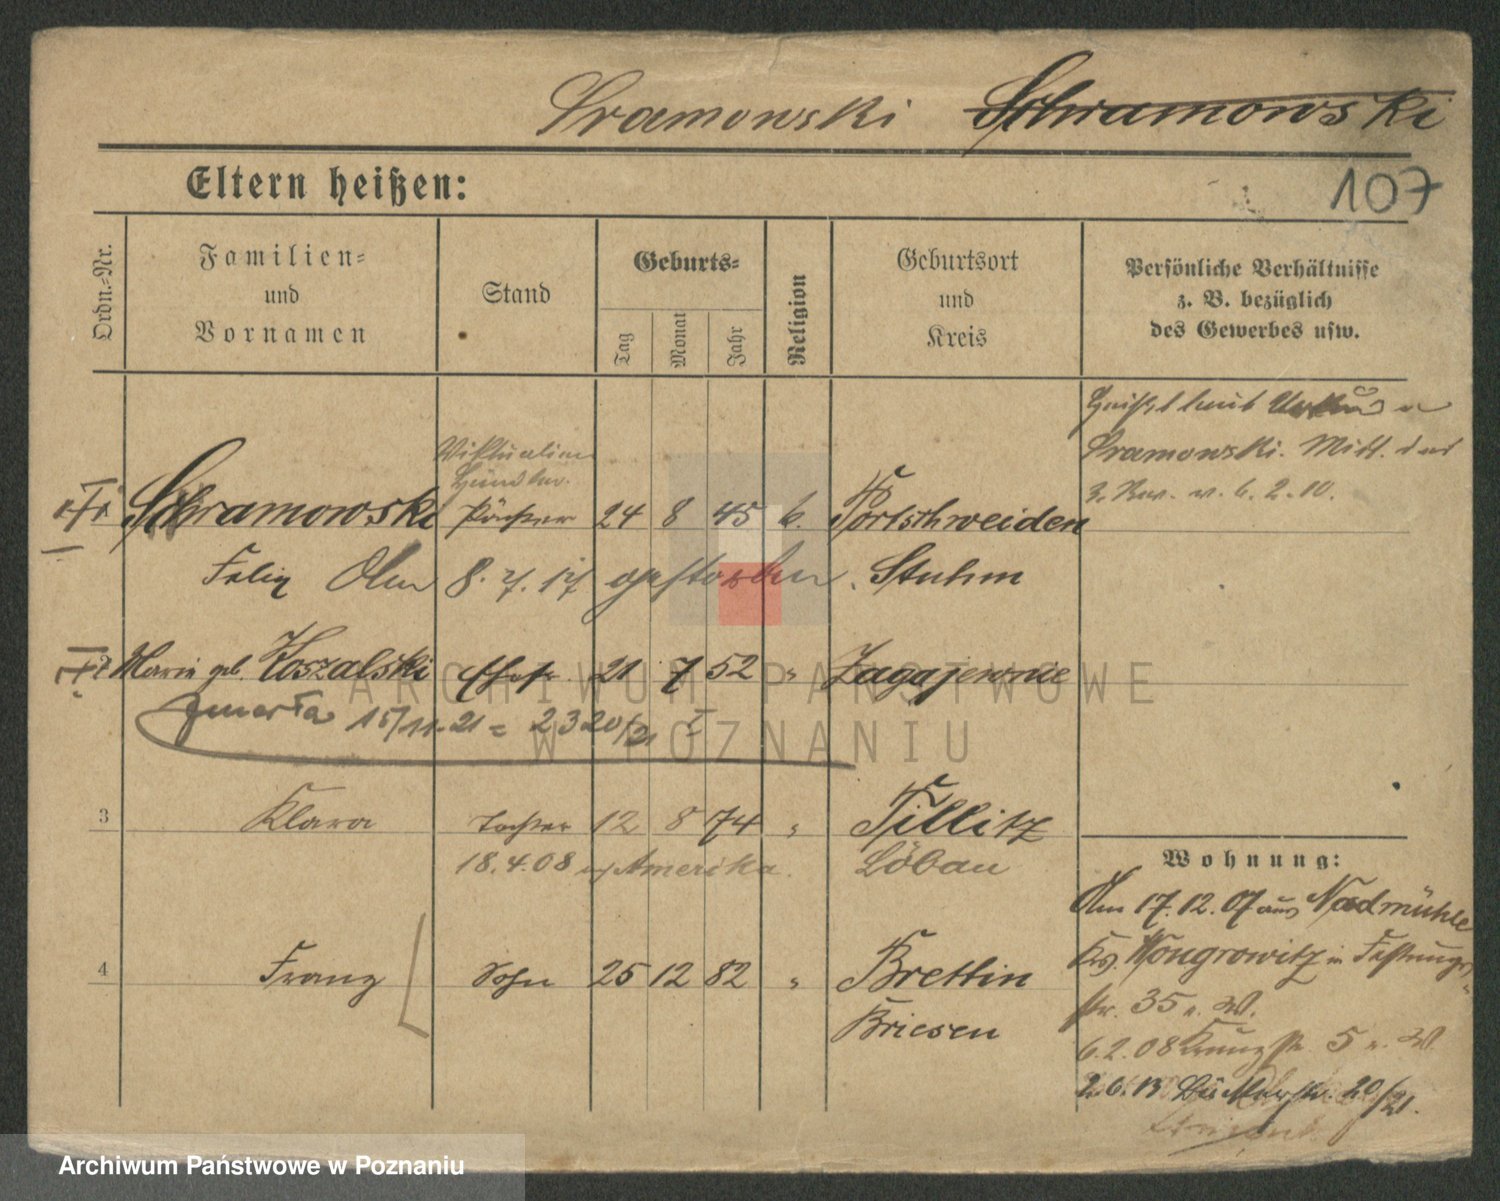 Sramowski Schramowski
107
Eltern heißen:
Ordn.-Nr.
Familien-
und
Vornamen
Stand
Geburts-
Tag
Monat
Jahr
Religion
Geburtsort
und
Kreis
Persönliche Verhältnisse
z. B. bezüglich
des Gewerbes usw.
heißt laut
Sramowski. Mitt. des
v. 6.2.10.
Viktualien
Händler.
Schramowski Pächter 24 8 45 k. Portschweiden
Felix Am 8. 7. 17 gestorben. Stuhm
Marie geb. Koszalski Ehefr. 21 7 52 " Zagajewnie
zmarła 15/11.21 = 2320/21 I
3 Klara Tochter 12 8 74 " Tillitz
18.4.08 n/Amerika. Löbau
4 Franz Sohn 25 12 82 " Brettin
Briesen
Wohnung:
Am 17.12.07 aus Nadmühle
Krs. Wongrowitz in Festungs-
str. 35 n. W.
6.2.08 Kreuzstr. 5 n. W.
2.6.13 Büttelstr. 20/21.
ARCHIWUM PAŃSTWOWE
W POZNANIU
Archiwum Państwowe w Poznaniu